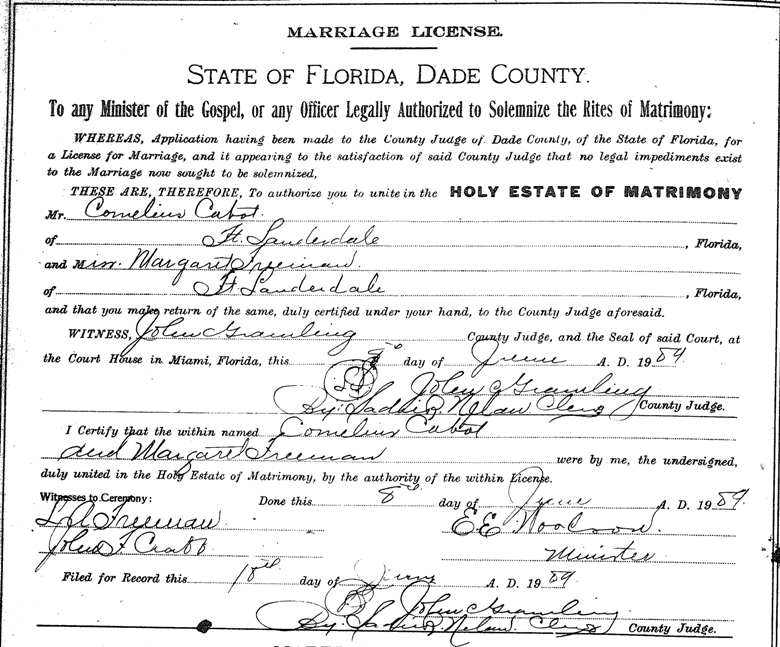 MARRIAGE LICENSE.
STATE OF FLORIDA, DADE COUNTY.
To any Minister of the Gospel, or any Officer Legally Authorized to Solemnize the Rites of Matrimony:
WHEREAS, Application having been made to the County Judge of Dade County, of the State of Florida, for
a License for Marriage, and it appearing to the satisfaction of said County Judge that no legal impediments exist
to the Marriage now sought to be solemnized,
THESE ARE, THEREFORE, To authorize you to unite in the HOLY ESTATE OF MATRIMONY
Mr. Cornelius Cabot.
of Ft. Lauderdale, Florida,
and Miss. Margaret Freeman.
of Ft Lauderdale, Florida,
and that you make return of the same, duly certified under your hand, to the County Judge aforesaid.
WITNESS, John Gramling County Judge, and the Seal of said Court, at
the Court House in Miami, Florida, this 8th day of June A. D. 19
John C Gramling
By: Clerk County Judge.
I Certify that the within named Cornelius Cabot
and Margaret Freeman were by me, the undersigned,
duly united in the Holy Estate of Matrimony, by the authority of the within License.
Witnesses to Ceremony: Done this 8th day of June A. D. 19
Freeman E E Woodson.
John F Crabb Minister
Filed for Record this 18th day of June A. D. 19
John C Gramling
By: Clerk County Judge.